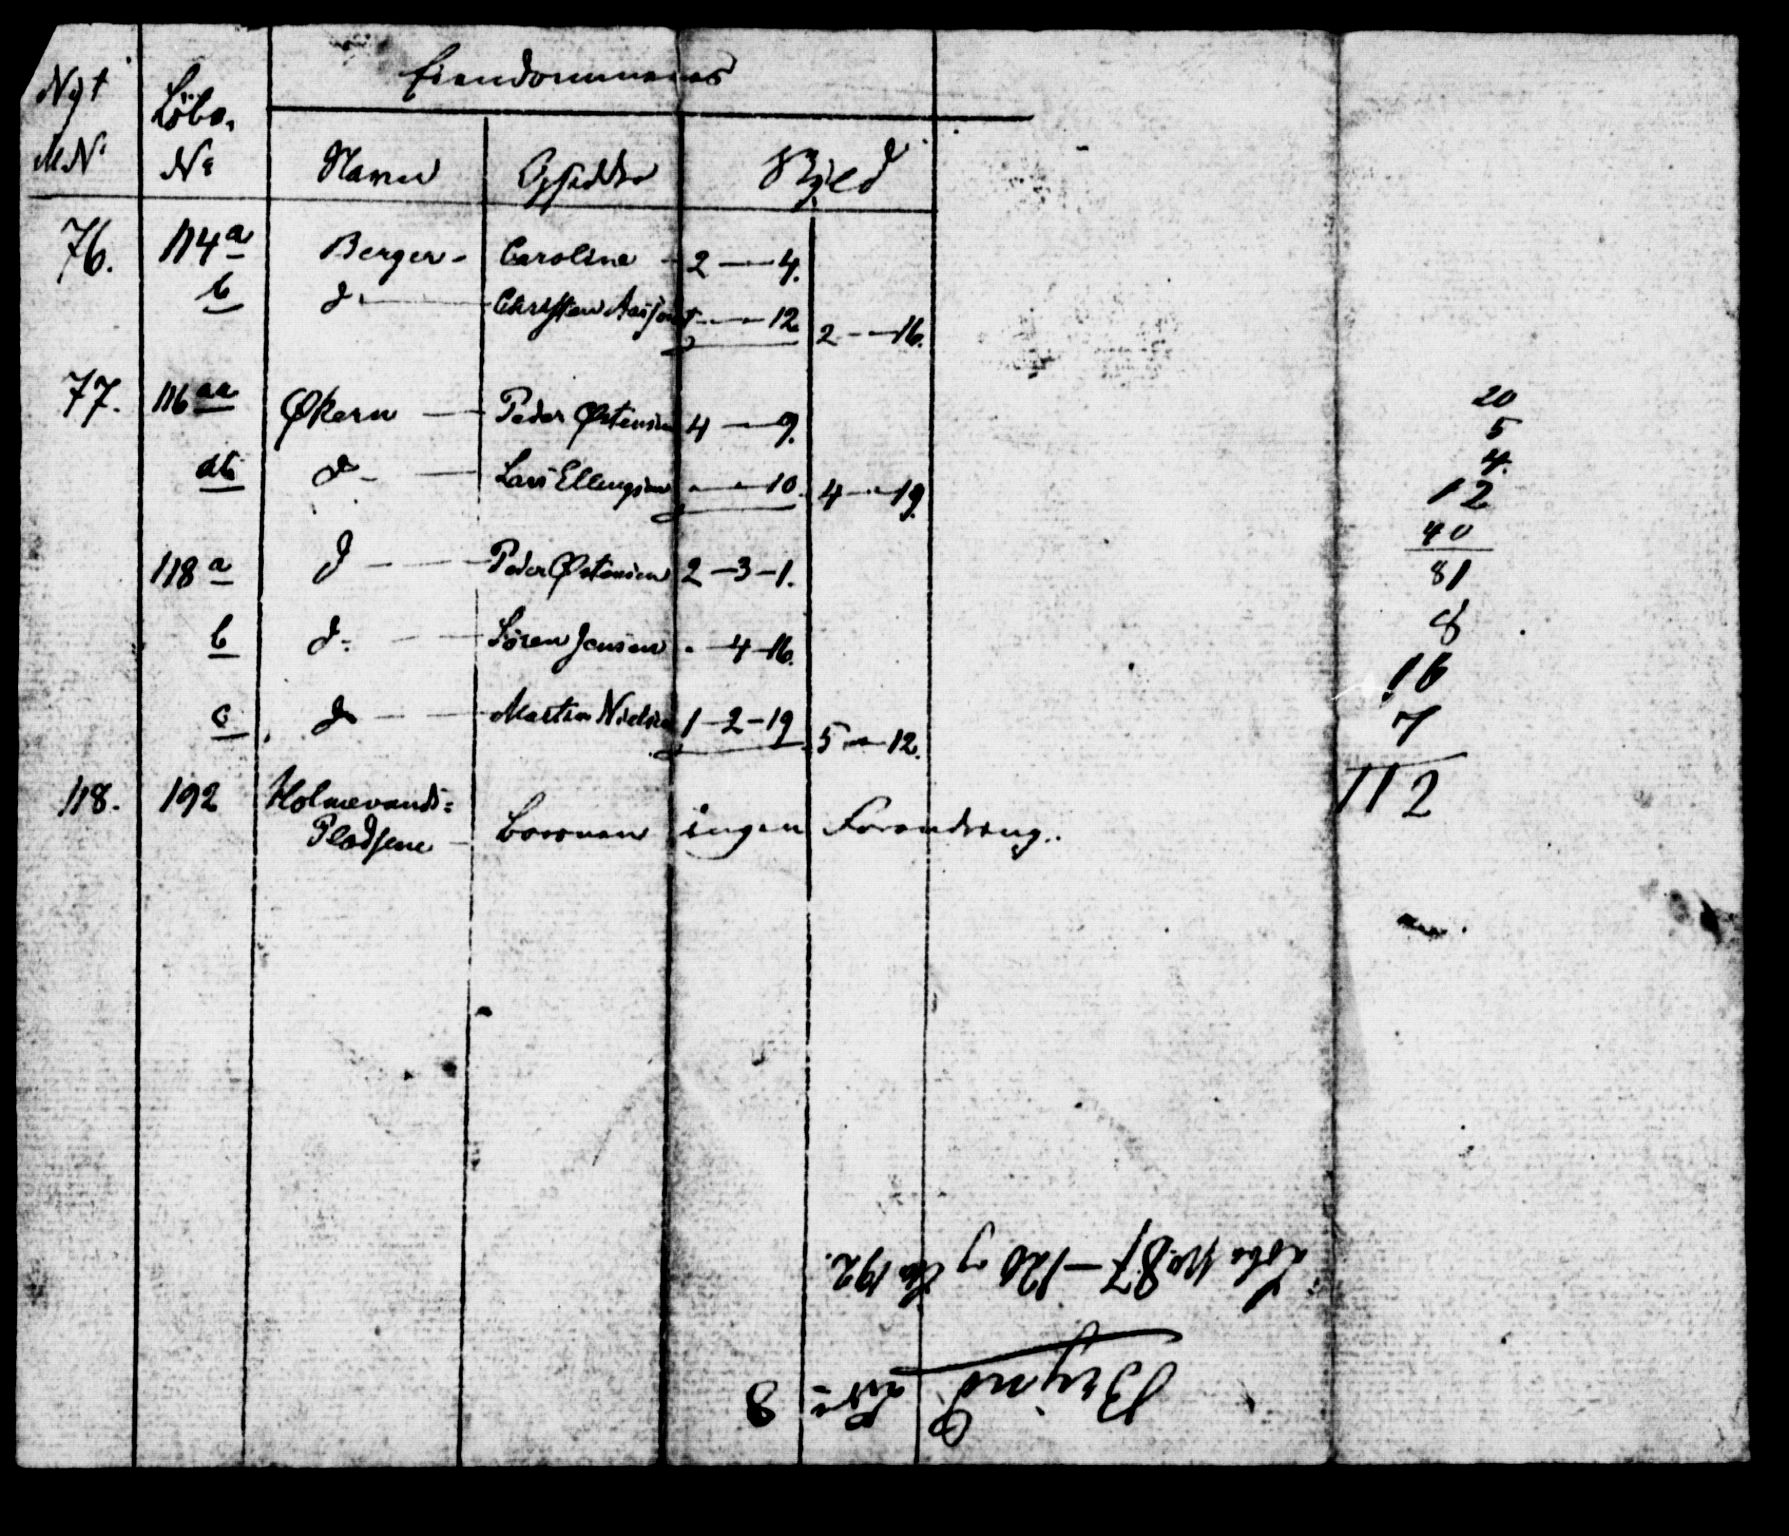 Eiendommenes
Nyt M.N: Løbe. N: Navn Opsidder Skyld
76. 114 a Berger - Caroline - 2 — 4.
b d: — Christian — 12 2 — 16.
77. 116 aa Økern — Peder Østensen 4 — 9.
ab d - — Lars Ellingsen . — 10. 4 — 19.
118 a d — Peder Østensen 2 - 3 - 1.
b d: — Søren Jensen . - 4 - 16.
c d — Martin Nielsen 1 - 2 - 19 5 — 12.
118. 192 Holmevands=
Pladsene - ingen Forandring..
20
5
4.
12
40
81
8
16
7
112
Løbe No 87 - 120 og 192.
8